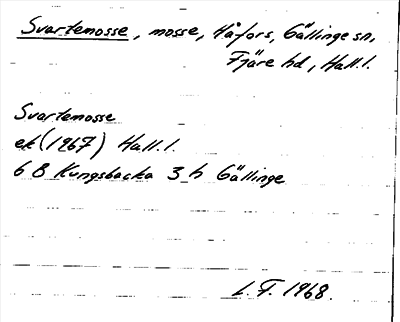 Svartemosse, mosse, Håfors, Gällinge sn,
Fjäre hd, Hall.l.
Svartemosse
ek (1967) Hall.l.
6 B Kungsbacka 3 h Gällinge
L.F. 1968.